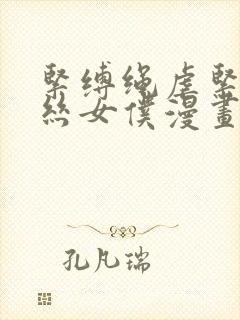 緊縛绳虐緊
絲女僕漫畫
孔凡瑞